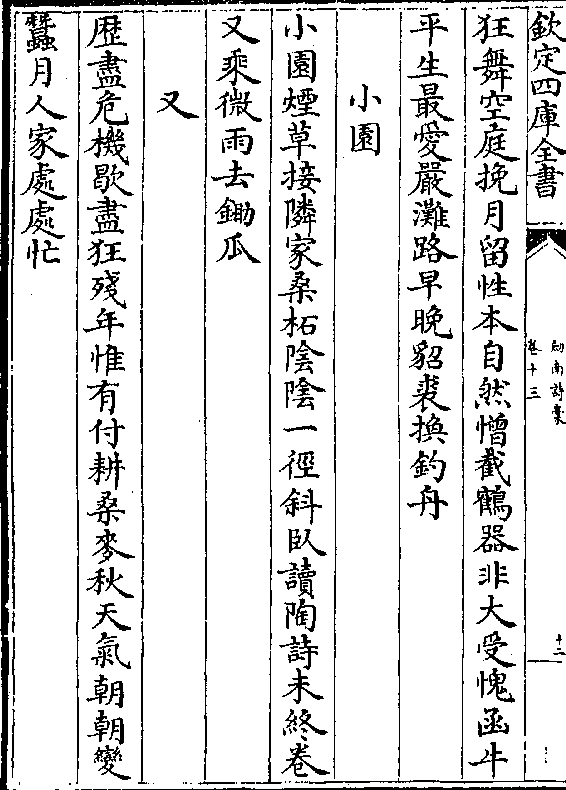 欽定四庫全書
劍南詩稾
卷十三
十二
狂舞空庭挽月留性本自然憎截鶴器非大受愧函牛
平生最愛嚴灘路早晚貂裘換釣舟
小園
小園煙草接隣家桑柘陰陰一徑斜臥讀陶詩未終卷
又乘微雨去鋤瓜
又
歴盡危機歇盡狂殘年惟有付耕桑麥秋天氣朝朝變
蠶月人家處處忙